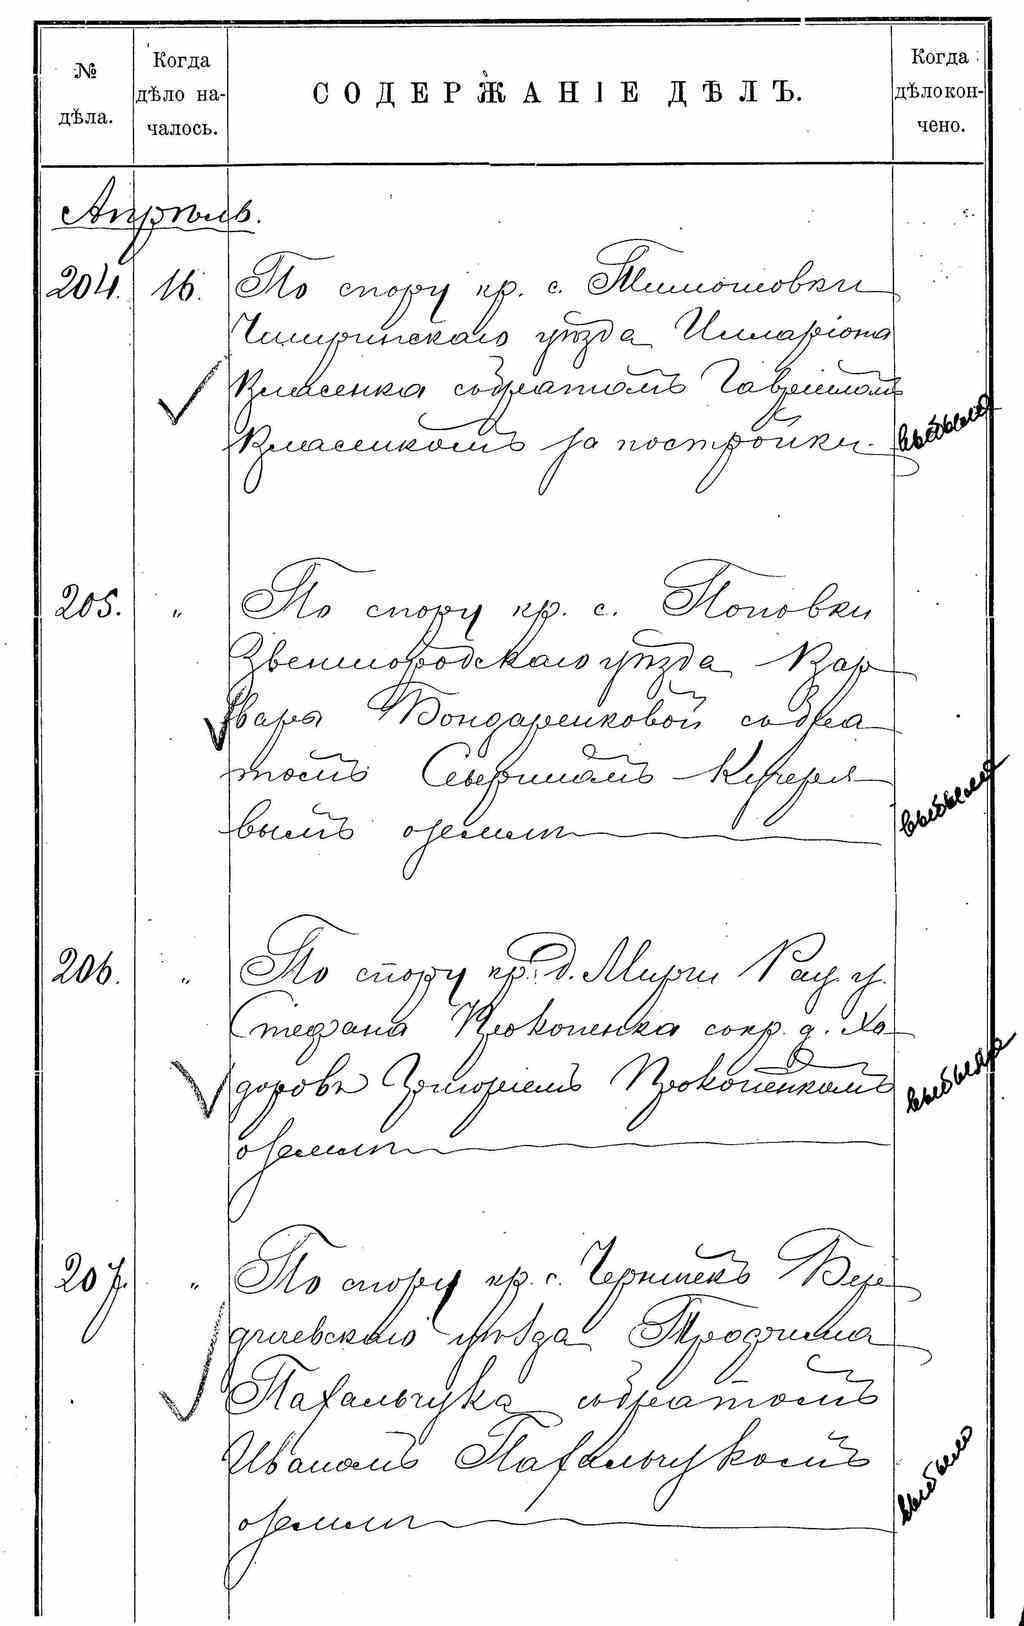 № дѣла.
Когда дѣло на-
чалось.
СОДЕРЖАНІЕ ДѢЛЪ.
Когда дѣло кон-
чено.
Апрѣль.
204. 16. По спору кр. с. Тимошовки
Чигиринскаго уѣзда Илларіона
Власенка съ братомъ Гавріиломъ
Власенкомъ за постройки. выбыло
205. " По спору кр. с. Поповки
Звенигородскаго уѣзда Вар
вары Бондаренковой съ бра
томъ Северіаномъ Кучеря
вымъ о землѣ выбыло
206. " По спору кр. д. Мирчи Рад. у.
Стефана Прокопенка с кр. д. Хо
доровъ Григоріемъ Прокопенкомъ
о землѣ выбыло
207. " По спору кр. с. Чернишекъ Бер
дичевскаго уѣзда Трофима
Пахальчука съ братомъ
Иваномъ Пахальчукомъ
о землѣ выбыло